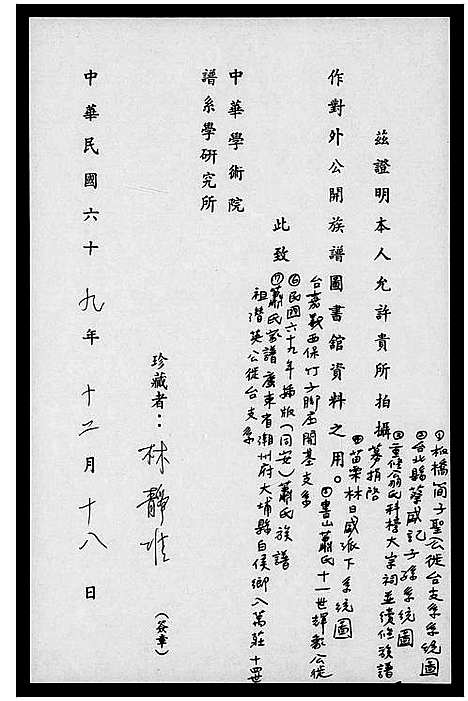 茲證明本人允許貴所拍攝
①板橋簡子聖公徙台支系系統圖
②台北縣蔡咸記子孫系統圖
③重修翁氏科檨大宗祠並續修族譜
募捐啓
④苗栗林日盛派下系統圖
作對外公開族譜圖書舘資料之用。
⑤書山蕭氏十一世輝歎公徙
台嘉義西保竹子脚庄開基支系
⑥民國六十九年編版(同安)蕭氏族譜
⑦蕭氏家譜廣東省潮州府大埔縣白侯鄉入萬莊十四世
祖潛英公徙台支系
此致
中華學術院
譜系學研究所
珍藏者:林靜
(簽章)
中華民國六十九年十二月十八日